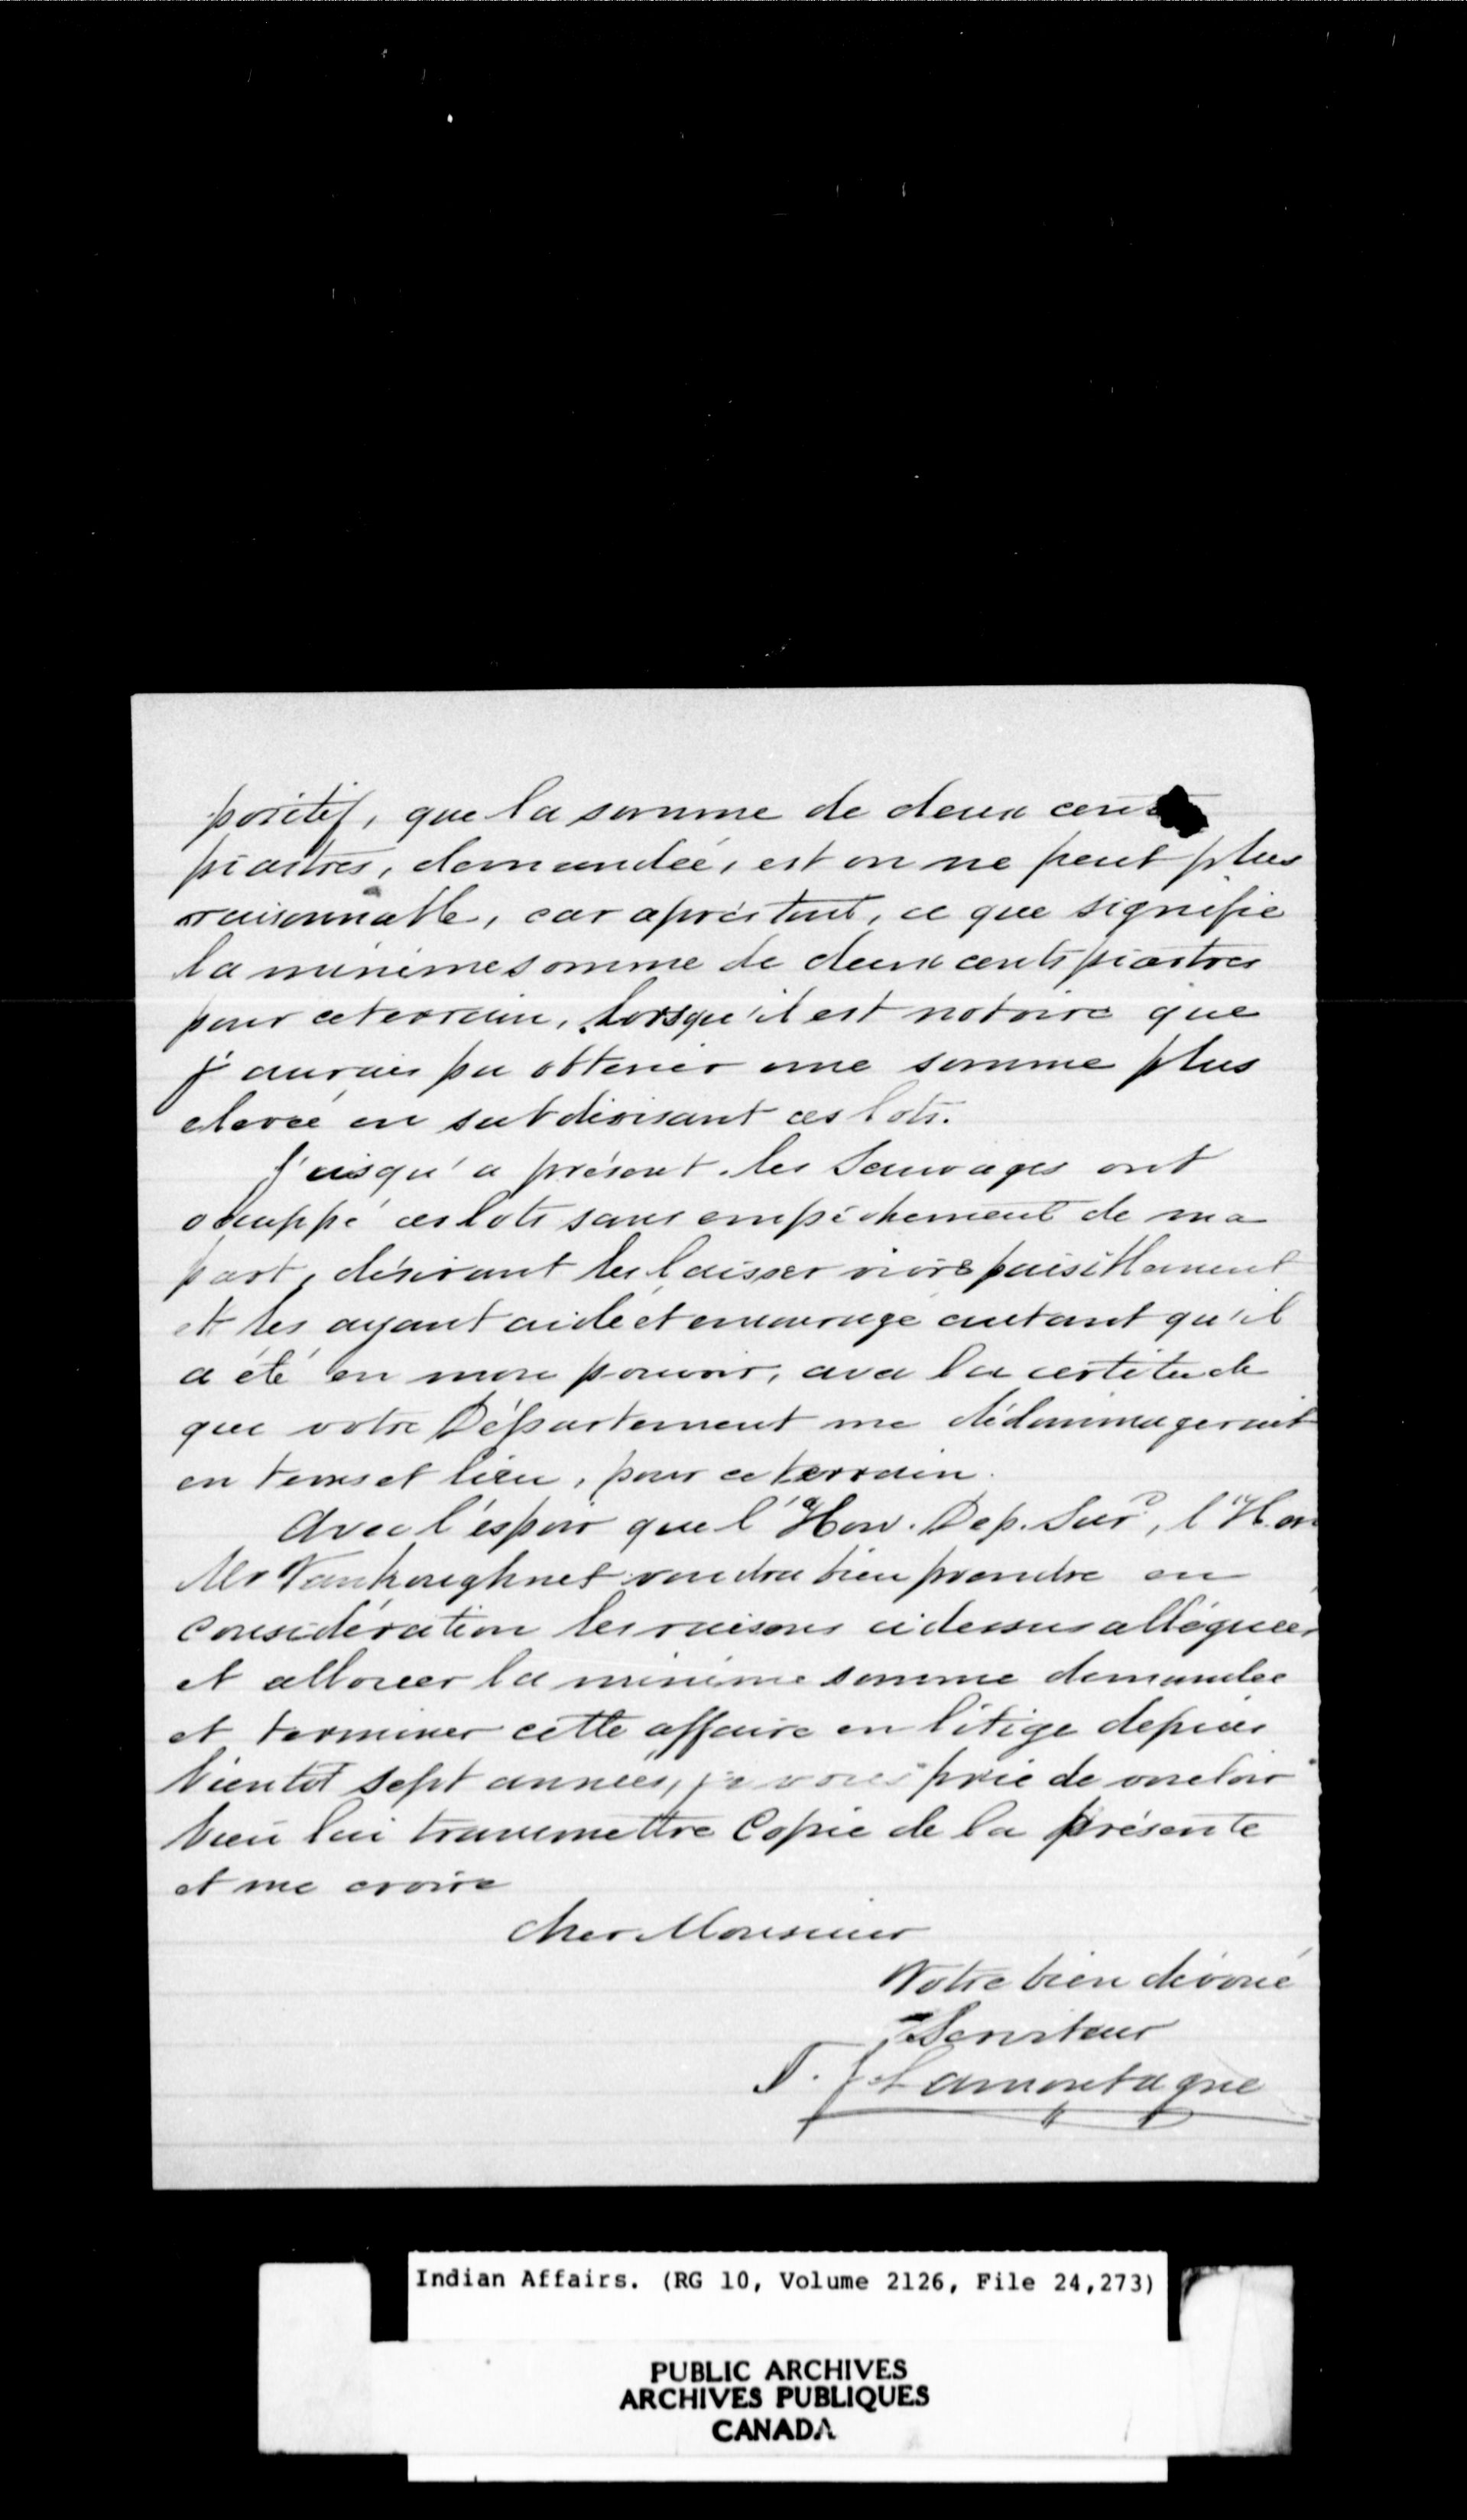 positif, que la somme de deux cents
piastres, demandée, est on ne peut plus
raisonnable, car après tout, ce que signifie
la minime somme de deux cents piastres
pour ce terrain, lorsqu'il est notoire que
j'aurais pu obtenir une somme plus
elevée en subdivisant ces lots.
Jusqu'a présent les Sauvages ont
occuppé ces lots sans empêchement de ma
part, désirant les laisser vivre paisiblement
et les ayant aidé et encouragé autant qu'il
a été en mon pouvoir, avec la certitude
que votre Département me dédommagerait
en tems et lieu, pour ce terrain.
Avec l'éspoir que l'Hon. Dep. Sur, l'Hon
Mr Vankoughnet voudra bien prendre en
considération les raisons ci dessus alléguées
et allouer la minime somme demandée
et terminer cette affaire en litige depuis
bientôt sept années, je vous prie de vouloir
bien lui transmettre Copie de la présente
et me croire
Cher Monsieur
Votre bien dévoué
Serviteur
T. J. Lamontagne
Indian Affairs. (RG 10, Volume 2126, File 24,273)
PUBLIC ARCHIVES
ARCHIVES PUBLIQUES
CANADA